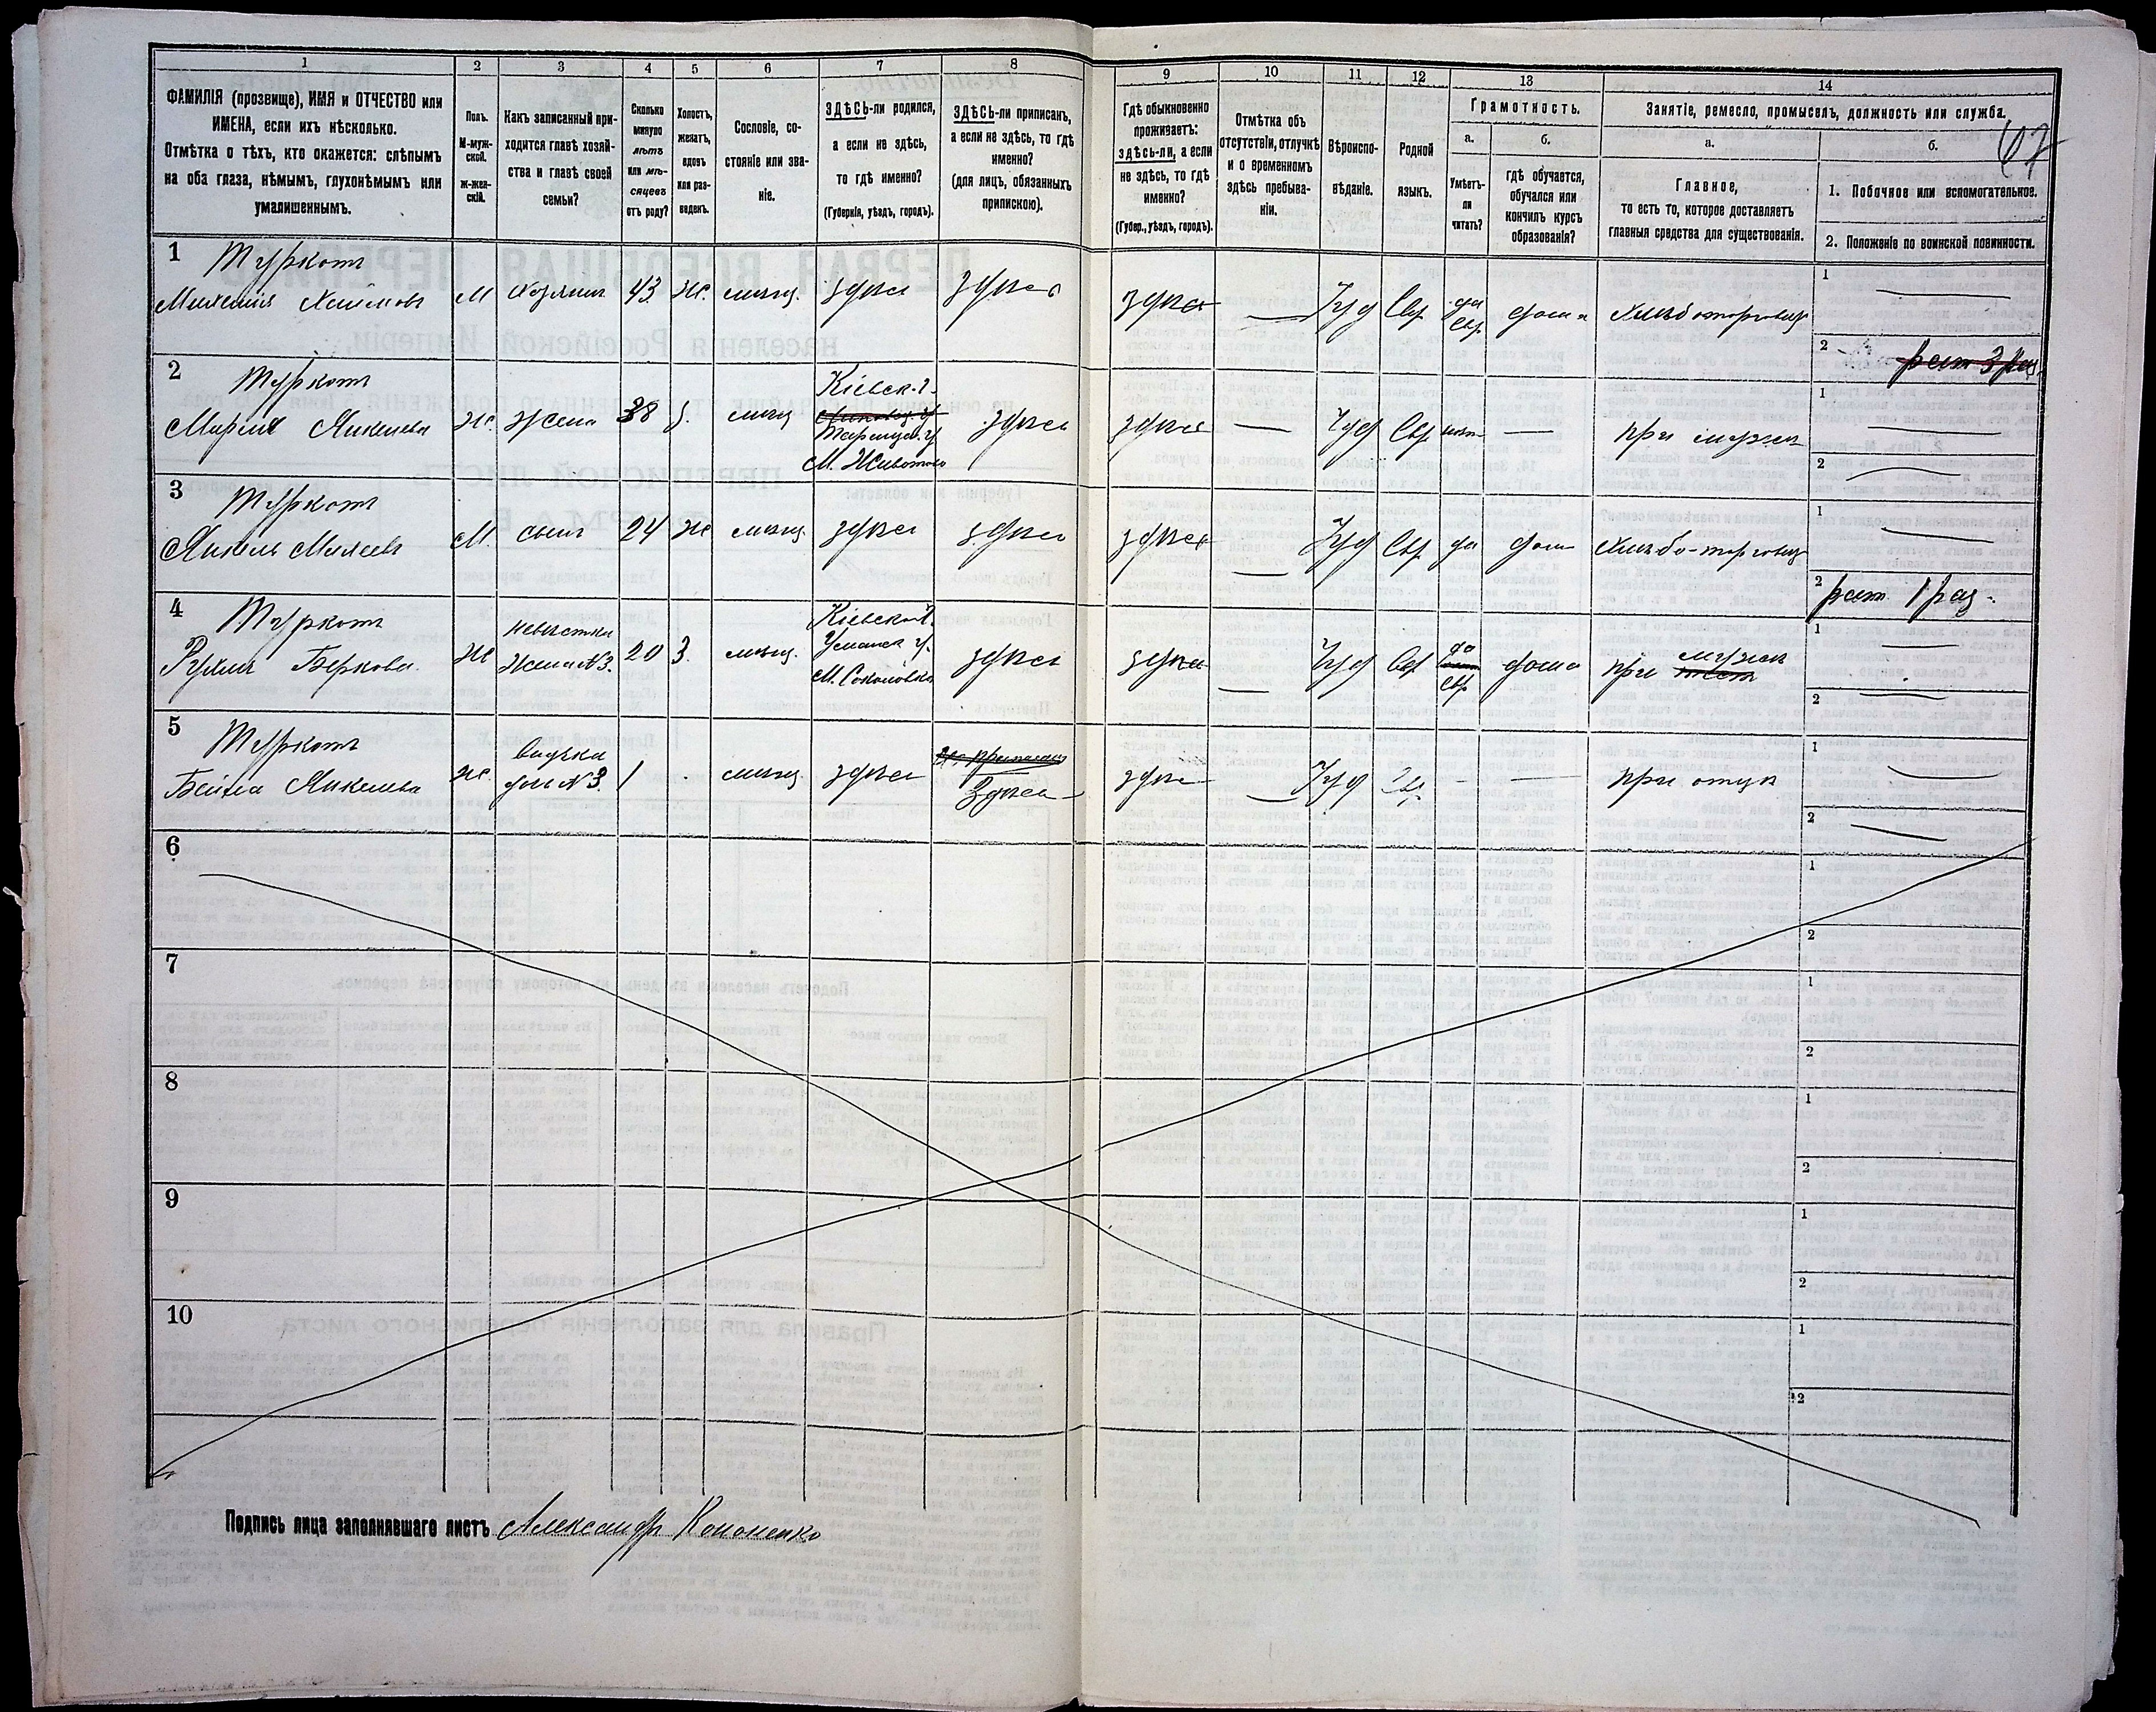 1
2
3
4
5
6
7
8
9
10
11
12
13
14
ФАМИЛІЯ (прозвище), ИМЯ и ОТЧЕСТВО или
ИМЕНА, если ихъ нѣсколько.
Отмѣтка о тѣхъ, кто окажется: слѣпымъ
на оба глаза, нѣмымъ, глухонѣмымъ или
умалишеннымъ.
Полъ.
М-муж-
ской.
ж-жен-
скій.
Какъ записанный при-
ходится главѣ хозяй-
ства и главѣ своей
семьи?
Сколько
минуло
лѣтъ
или мѣ-
сяцевъ
отъ роду?
Холостъ,
женатъ,
вдовъ
или раз-
веденъ.
Сословіе, со-
стояніе или зва-
ніе.
ЗДѢСЬ-ли родился,
а если не здѣсь,
то гдѣ именно?
(Губернія, уѣздъ, городъ).
ЗДѢСЬ-ли приписанъ,
а если не здѣсь, то гдѣ
именно?
(для лицъ, обязанныхъ
припискою).
Гдѣ обыкновенно
проживаетъ:
здѣсь-ли, а если
не здѣсь, то гдѣ
именно?
(Губер., уѣздъ, городъ).
Отмѣтка объ
отсутствіи, отлучкѣ
и о временномъ
здѣсь пребыва-
ніи.
Вѣроиспо-
вѣданіе.
Родной
языкъ.
Грамотность.
а.
б.
Умѣетъ-
ли
читать?
гдѣ обучается,
обучался или
кончилъ курсъ
образованія?
Занятіе, ремесло, промыселъ, должность или служба.
а.
б.
67
Главное,
то есть то, которое доставляетъ
главныя средства для существованія.
1. Побочное или вспомогательное.
2. Положеніе по воинской повинности.
1
Туркотъ
М
хозяинъ
43
ж.
мѣщ.
здѣсь
здѣсь
здѣсь
Іуд
Евр
да
Евр.
дома
хлѣботорговецъ
1
2
2
Туркотъ
Янкелева
ж.
жена
38
з.
мѣщ
Кіевск. г.
М. Животово
здѣсь
здѣсь
—
Іуд
Евр
—
при мужѣ
1
2
3
Туркотъ
М.
сынъ
24
ж
мѣщ.
здѣсь
здѣсь
здѣсь
Іуд
Евр
да
дома
хлѣбо-торговецъ
1
2
1 раз.
4
Туркотъ
Рухля Беркова
ж
невѣстка
жена N3.
20
з.
мѣщ.
Кіевской г.
Уманск у.
М. Соколовка
здѣсь
здѣсь
Іуд
Евр
да
Евр.
дома
при мужѣ
1
2
5
Туркотъ
Бейла Янкелева
ж.
внучка
дочь N3.
1
мѣщ.
здѣсь
Здѣсь
здѣсь
Іуд
Евр.
—
—
при отцѣ
1
2
6
1
2
7
1
2
8
1
2
9
1
2
10
1
2
Подпись лица заполнявшаго листъ Александръ Кононенко